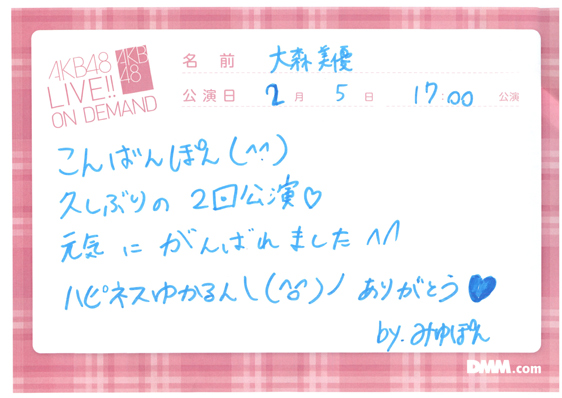 AKB48
LIVE!!
ON DEMAND
AKB
48
名前 大森美優
公演日 2月5日 17:00 公演
こんばんぽん(^^)
久しぶりの 2回公演♡
元気にがんばれました^^
ハピネスゆかるん\(^o^)ノ ありがとう♥
by.みゆぽん
DMM.com